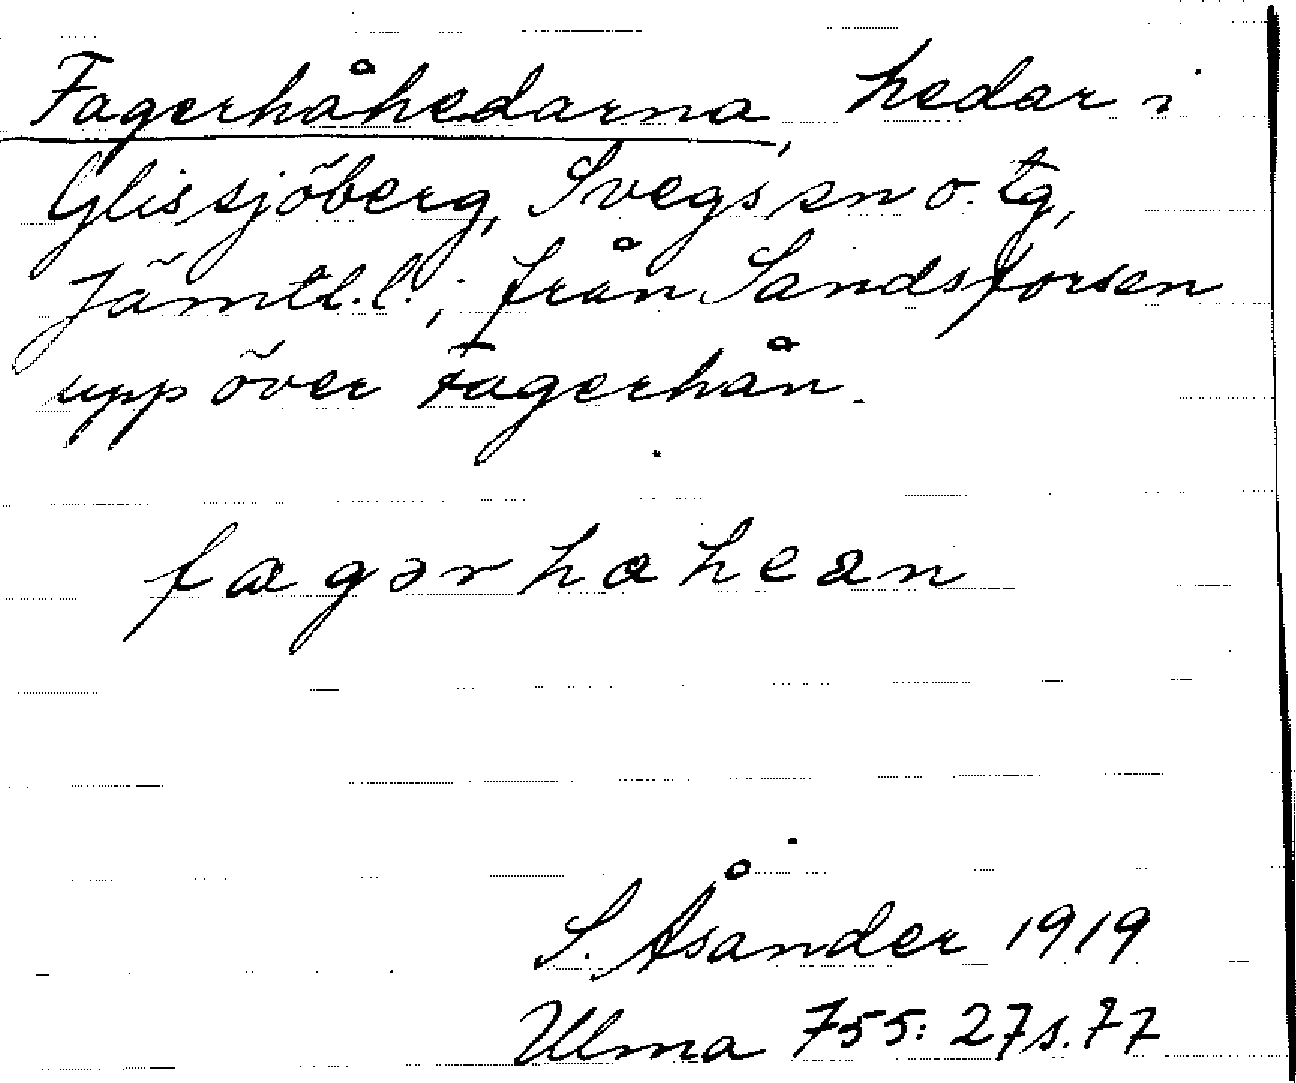 Fagerhåhedarna, hedar i
Glissjöberg, Svegs sn o. tg,
Jämtl. l.; från Sandsforsen
upp över Fagerhån.
fagərhahean
S. Åsander 1919
Ulma 755: 27 s. 77